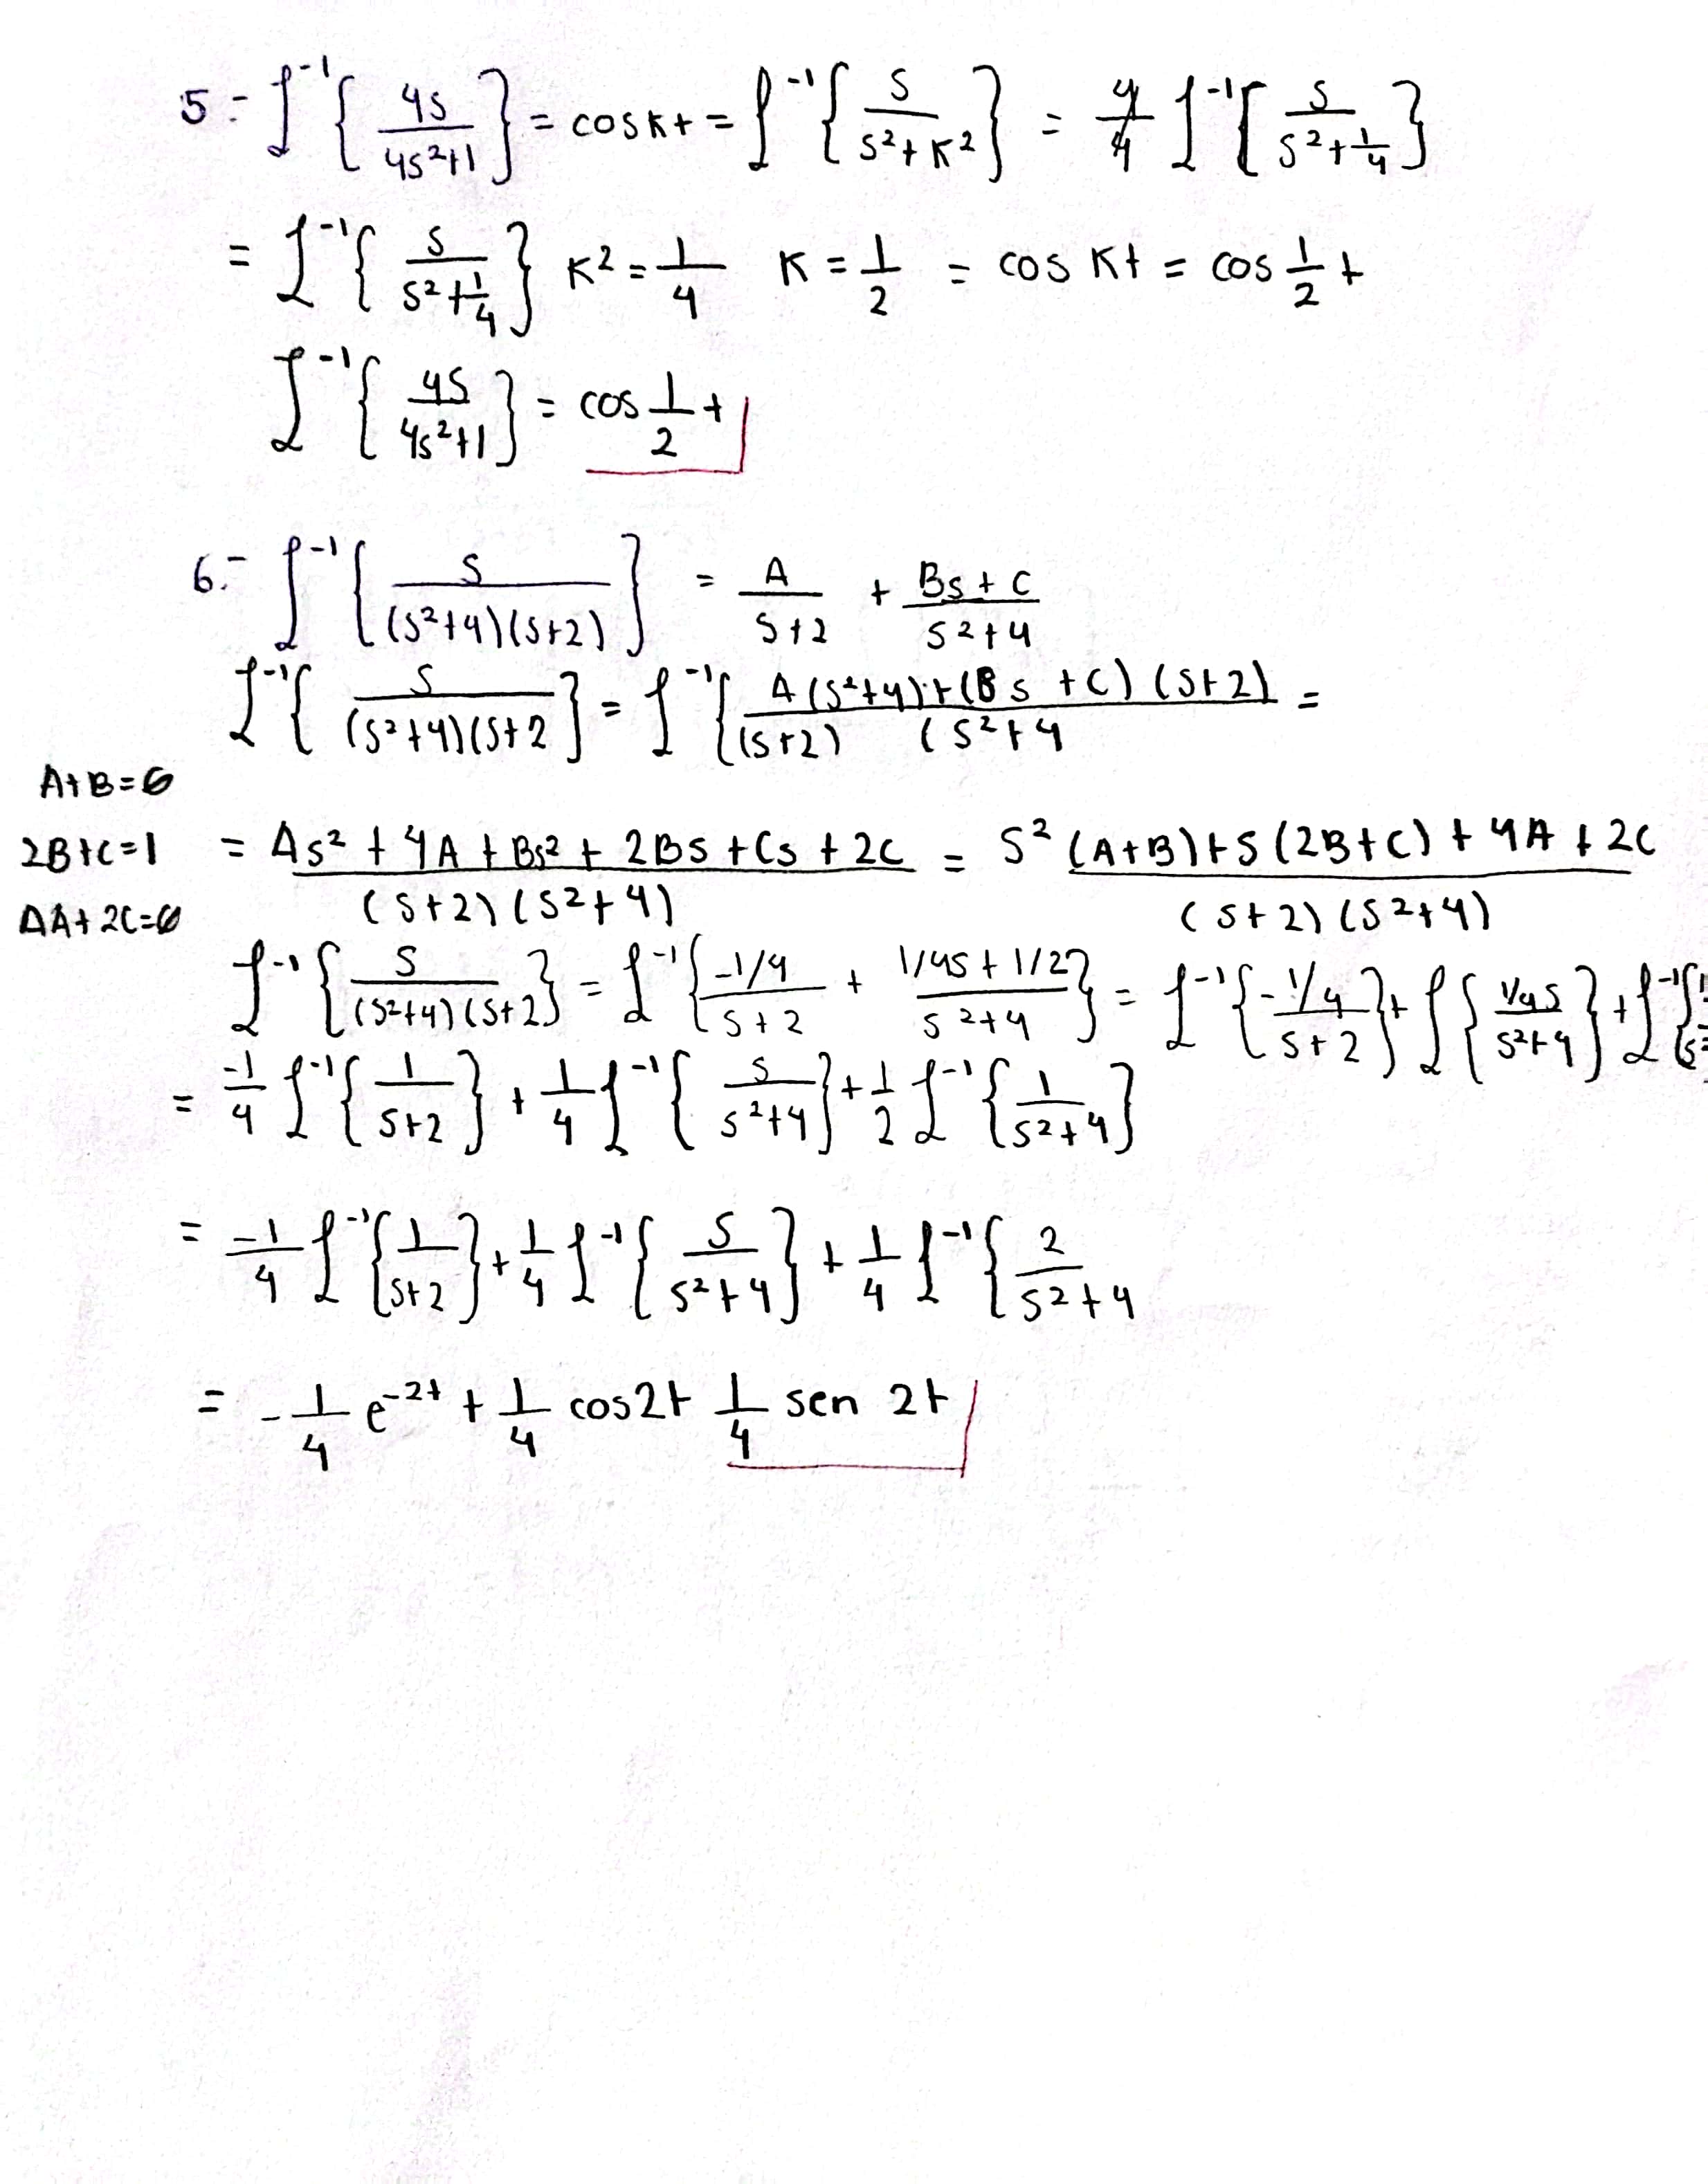 5.- ℒ⁻¹{4s/(4s²+1)} = cos kt = ℒ⁻¹{s/(s²+k²)} = 4/4 ℒ⁻¹{s/(s²+1/4)}
= ℒ⁻¹{s/(s²+1/4)} k² = 1/4 k = 1/2 = cos kt = cos 1/2 t
ℒ⁻¹{4s/(4s²+1)} = cos 1/2 t
6.- ℒ⁻¹{s/((s²+4)(s+2))} = A/(s+2) + (Bs+C)/(s²+4)
ℒ⁻¹{s/((s²+4)(s+2} = ℒ⁻¹{(A(s²+4)+(Bs+C)(s+2))/((s+2) (s²+4 =
A+B=0
2B+C=1
4A+2C=0
= (As²+4A+Bs²+2Bs+Cs+2C)/((s+2)(s²+4)) = (s²(A+B)+s(2B+C)+4A+2C)/((s+2)(s²+4))
ℒ⁻¹{s/((s²+4)(s+2)} = ℒ⁻¹{-1/4/(s+2) + (1/4s+1/2)/(s²+4)} = ℒ⁻¹{-1/4/(s+2)} + ℒ{1/4s/(s²+4)} + ℒ⁻¹{
= -1/4 ℒ⁻¹{1/(s+2)} + 1/4 ℒ⁻¹{s/(s²+4)} + 1/2 ℒ⁻¹{1/(s²+4)}
= -1/4 ℒ⁻¹{1/(s+2)} + 1/4 ℒ⁻¹{s/(s²+4)} + 1/4 ℒ⁻¹{2/(s²+4)
= -1/4 e⁻²ᵗ + 1/4 cos2t 1/4 sen 2t